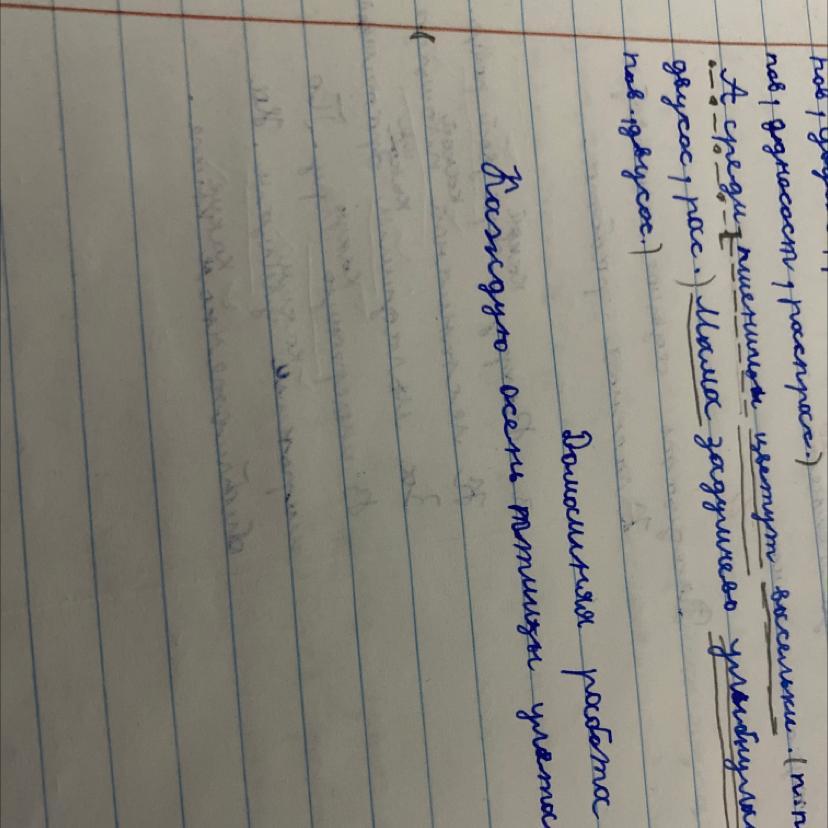 пов, двусос
пов, односост, распрос.)
А среди пшеницы цветут васельки. (пп
двусос, рас.) Мама задумчево улыбнулы
пов, двусос.)
Домошняя работа
Каждую осень птицы улета